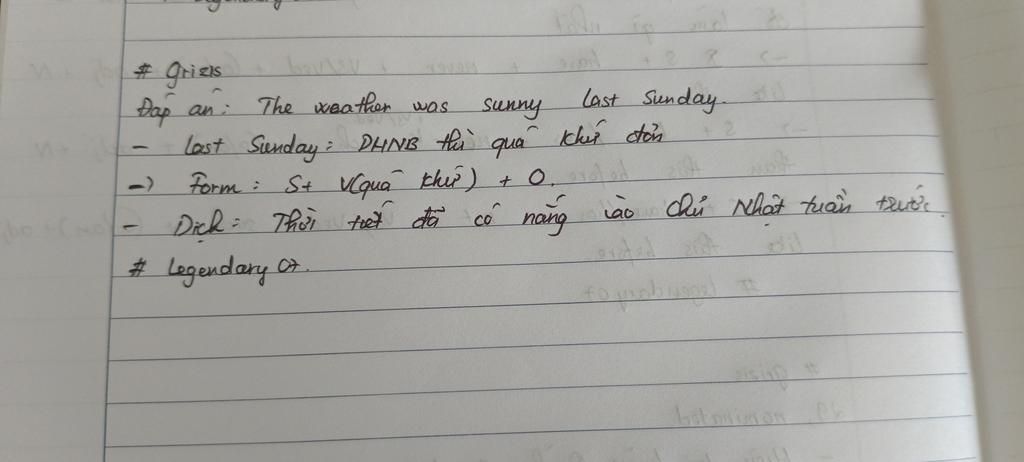 # Grizis
Đáp án: The weather was sunny last Sunday.
- last Sunday: DHNB thì quá khứ đơn
-> Form: S+ V(quá khứ) + O.
- Dịch: Thời tiết đã có nắng vào Chủ Nhật tuần trước.
# legendary 07.